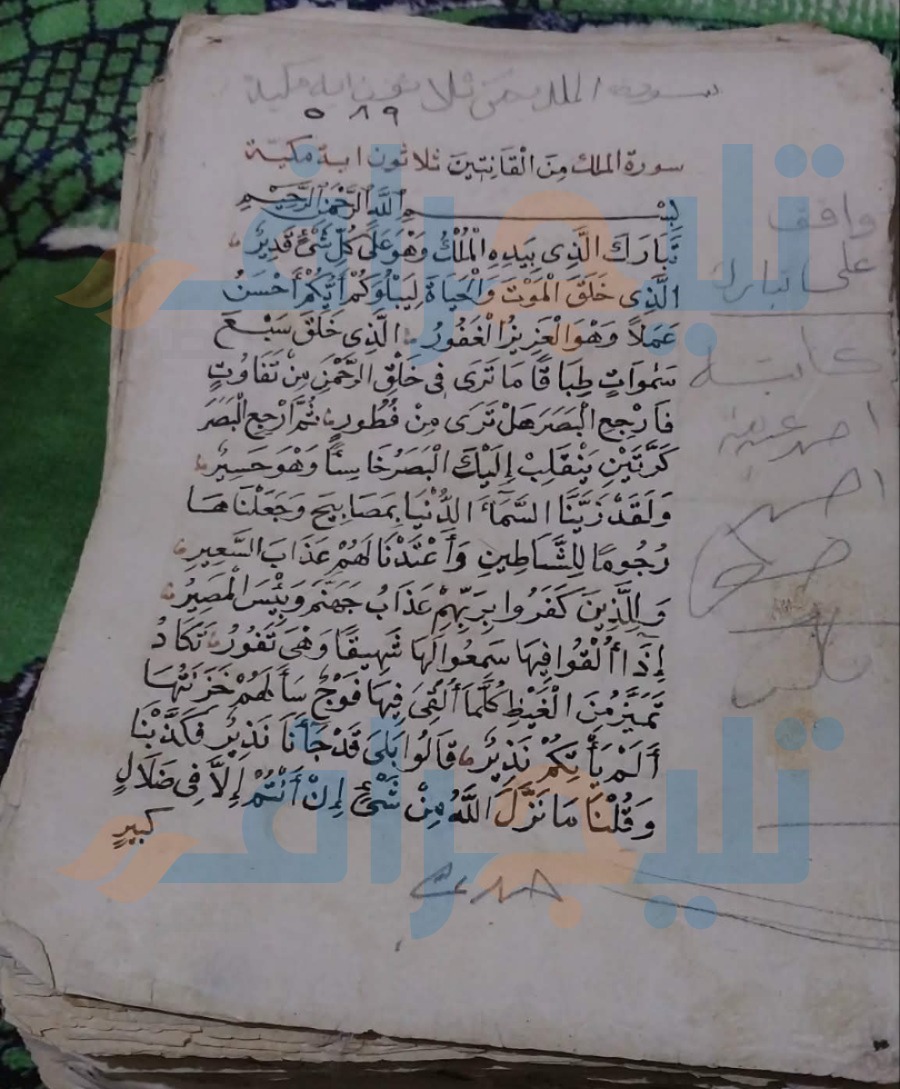 سورة الملك
٥٨٩
سورة الملك مِنَ الْقَانِتِينَ ثلاثون اية مكية
بِسْمِ اللَّهِ الرَّحْمَنِ الرَّحِيمِ
تَبَارَكَ الَّذِى بِيَدِهِ الْمُلْكُ وَهْوَ عَلَى كُلِّ شَىْءٍ قَدِيرٌ
الَّذِى خَلَقَ الْمَوْتَ وَالْحَيَاةَ لِيَبْلُوَكُمْ أَيُّكُمْ أَحْسَنُ
عَمَلاً وَهْوَ الْعَزِيزُ الْغَفُورُ الَّذِى خَلَقَ سَبْعَ
سَمٰوَاتٍ طِبَاقًا مَا تَرَى فِى خَلْقِ الرَّحْمَنِ مِنْ تَفَاوُتٍ
فَارْجِعِ الْبَصَرَ هَلْ تَرَى مِنْ فُطُورٍ ثُمَّ ارْجِعِ الْبَصَرَ
كَرَّتَيْنِ يَنْقَلِبْ إِلَيْكَ الْبَصَرُ خَاسِئًا وَهْوَ حَسِيرٌ
وَلَقَدْ زَيَّنَّا السَّمَاءَ الدُّنْيَا بِمَصَابِيحَ وَجَعَلْنَاهَا
رُجُومًا لِلشَّيَاطِينِ وَأَعْتَدْنَا لَهُمْ عَذَابَ السَّعِيرِ
وَلِلَّذِينَ كَفَرُوا بِرَبِّهِمْ عَذَابُ جَهَنَّمَ وَبِئْسَ الْمَصِيرُ
إِذَا أُلْقُوا فِيهَا سَمِعُوا لَهَا شَهِيقًا وَهْىَ تَفُورُ تَكَادُ
تَمَيَّزُ مِنَ الْغَيْظِ كُلَّمَا أُلْقِىَ فِيهَا فَوْجٌ سَأَلَهُمْ خَزَنَتُهَا
أَلَمْ يَأْتِكُمْ نَذِيرٌ قَالُوا بَلَى قَدْ جَاءَنَا نَذِيرٌ فَكَذَّبْنَا
وَقُلْنَا مَا نَزَّلَ اللَّهُ مِنْ شَىْءٍ إِنْ أَنْتُمْ إِلاَّ فِى ضَلاَلٍ
كَبِيرٍ
وافق
على تبارك
كاتبه
احمد
تليجراف
تليجراف